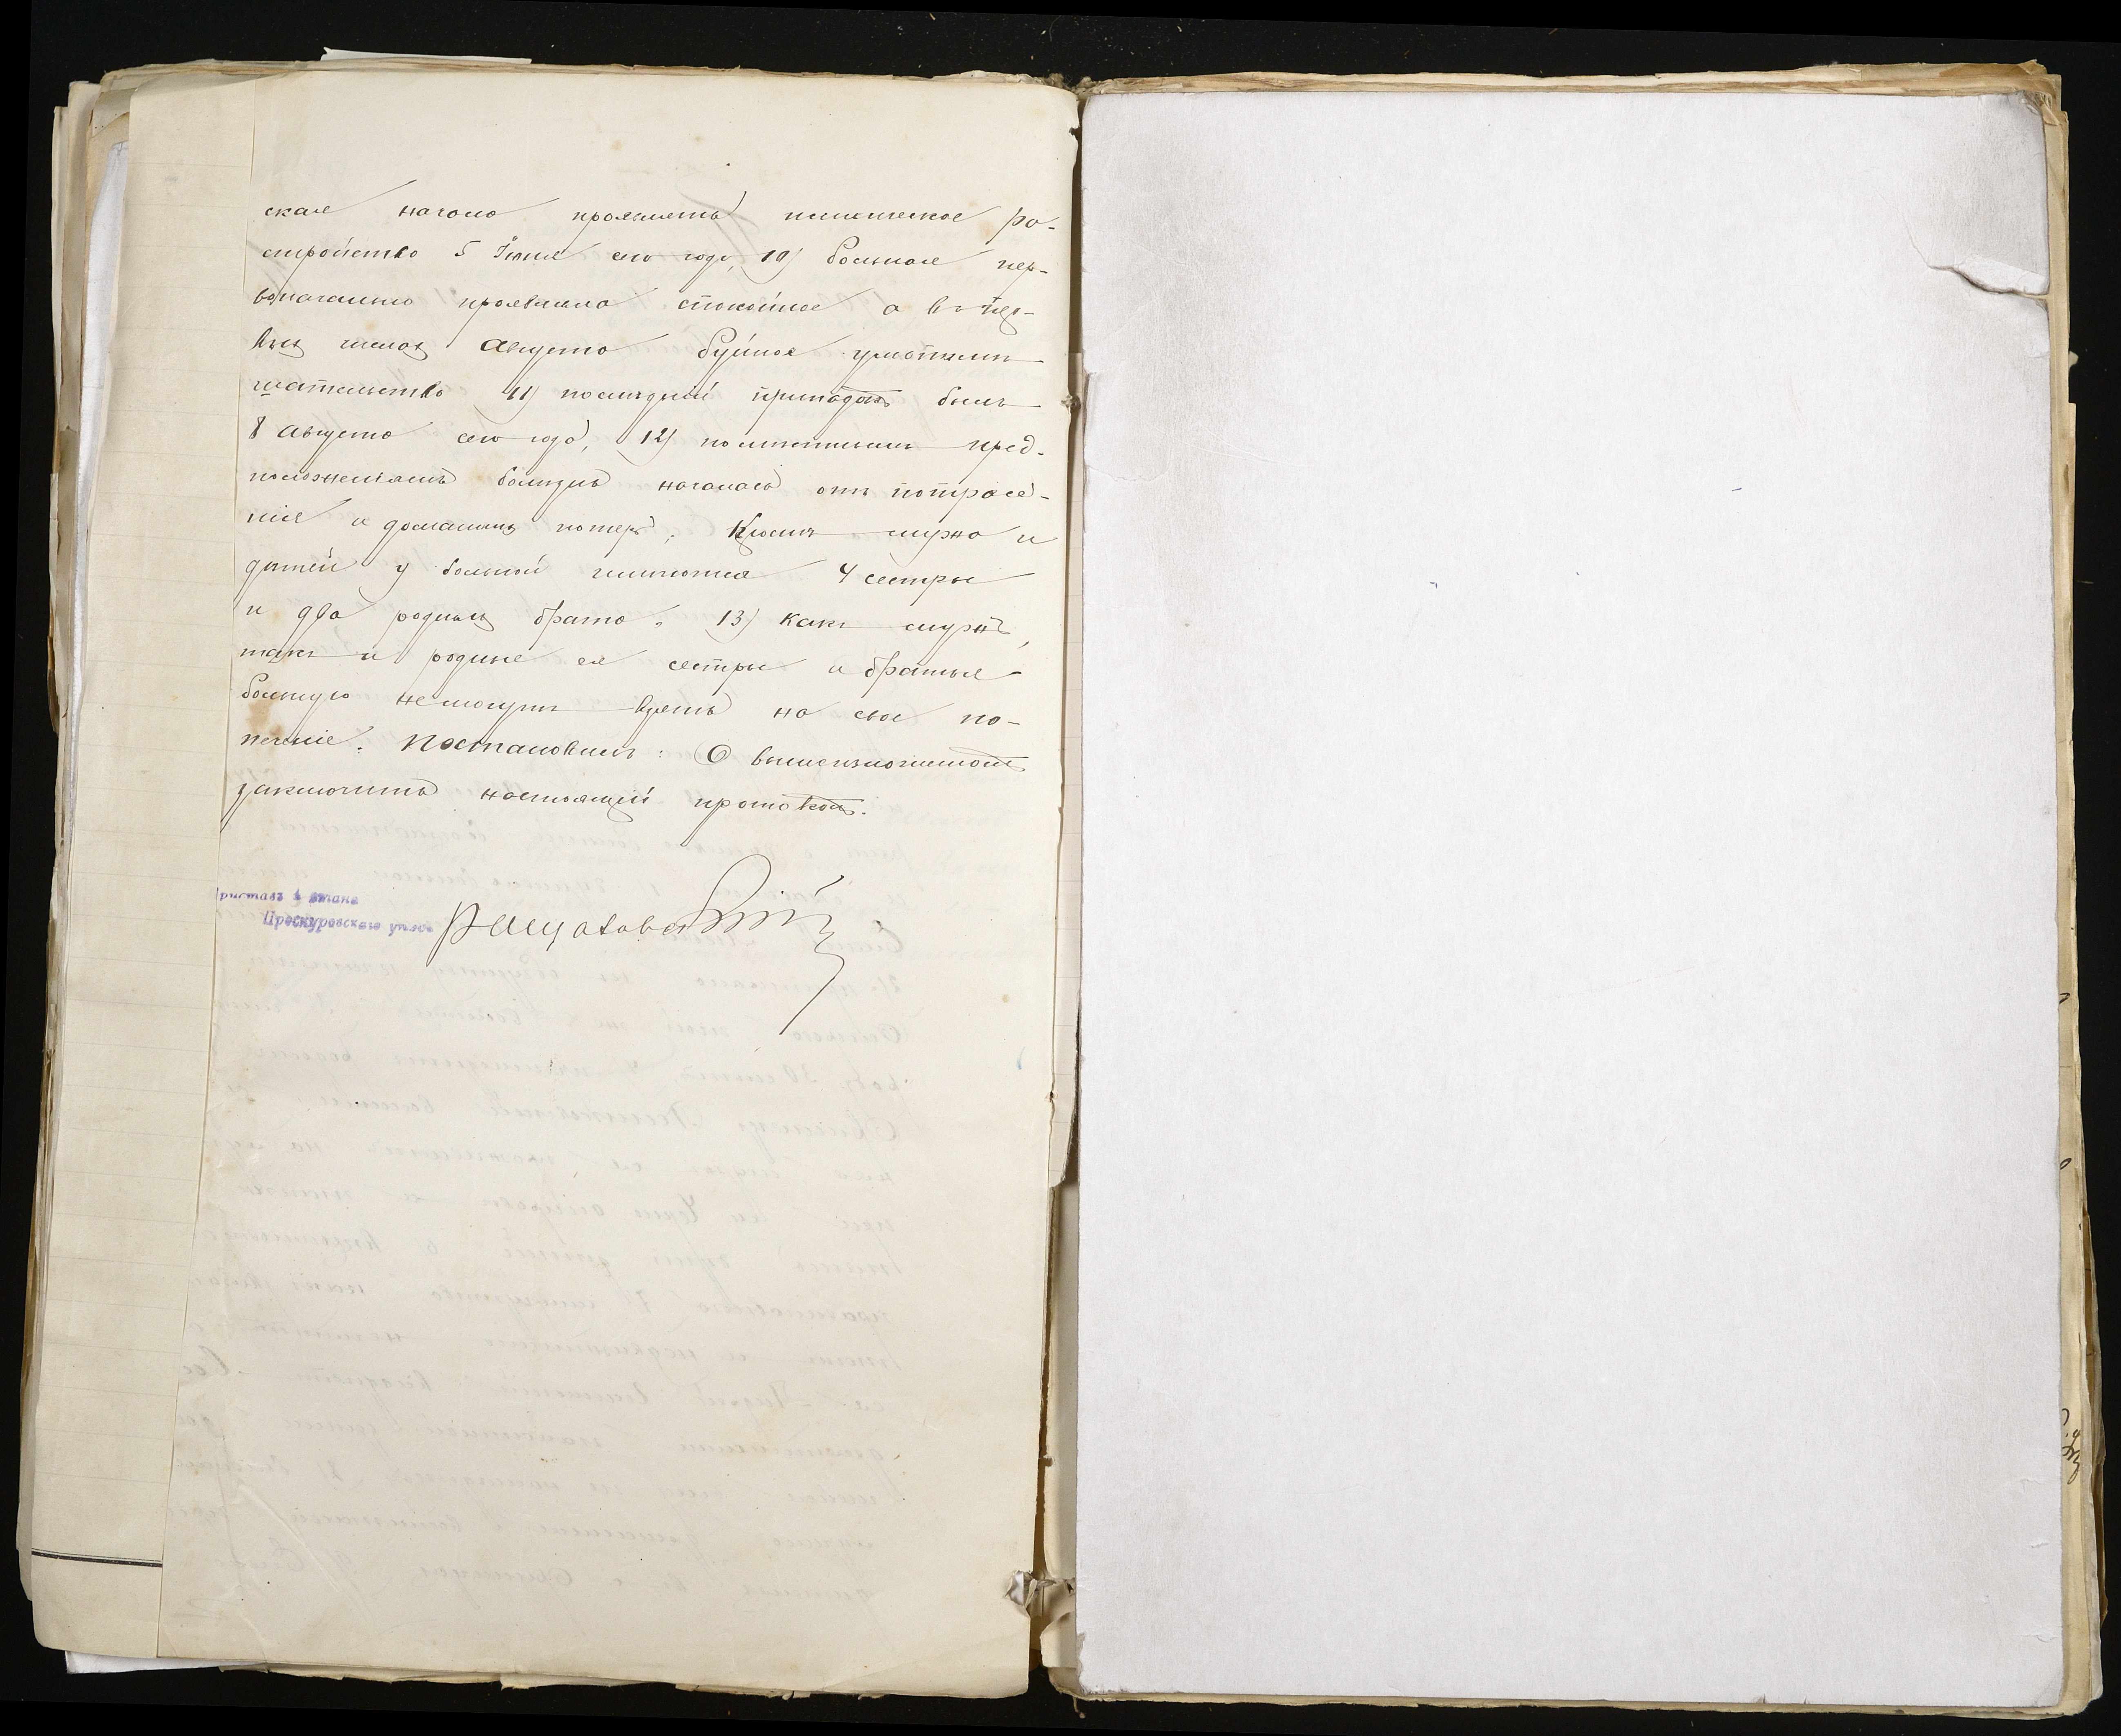 ская начала проявлять психическое ра-
стройство 5 Іюня сего года, 10) больная пер-
воначально проявляла спокойное а въ пер-
выхъ числахъ Августа буйное умопомѣ-
шательство 11) послѣдній припадокъ былъ
8 Августа сего года, 12) по мѣстнымъ пред-
положеніямъ болѣзнь началась отъ потрясе-
нія и домашнихъ потерь. Кромѣ мужа и
дѣтей у больной имѣются 4 сестры
и два родныхъ брата. 13) какъ мужъ,
такъ и родные ея сестры и братья
больную не могутъ взять на свое по-
печеніе. Постановилъ: О вышеизложенномъ
заключить настоящій протоколъ.
Приставъ 4 стана
Проскуровскаго уѣзда